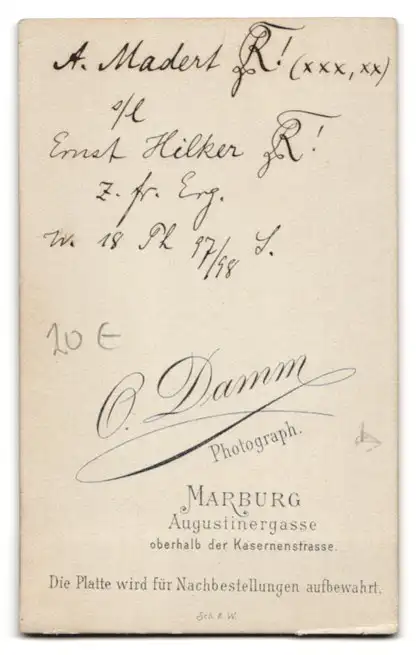 A. Madert R! (xxx, xx)
s/l
Ernst Hilker R!
z. fr. Erg.
W. 18 Ph 97/98 S.
20 €
O. Damm
Photograph.
MARBURG
Augustinergasse
oberhalb der Kasernenstrasse.
Die Platte wird für Nachbestellungen aufbewahrt.
Sch. & W.